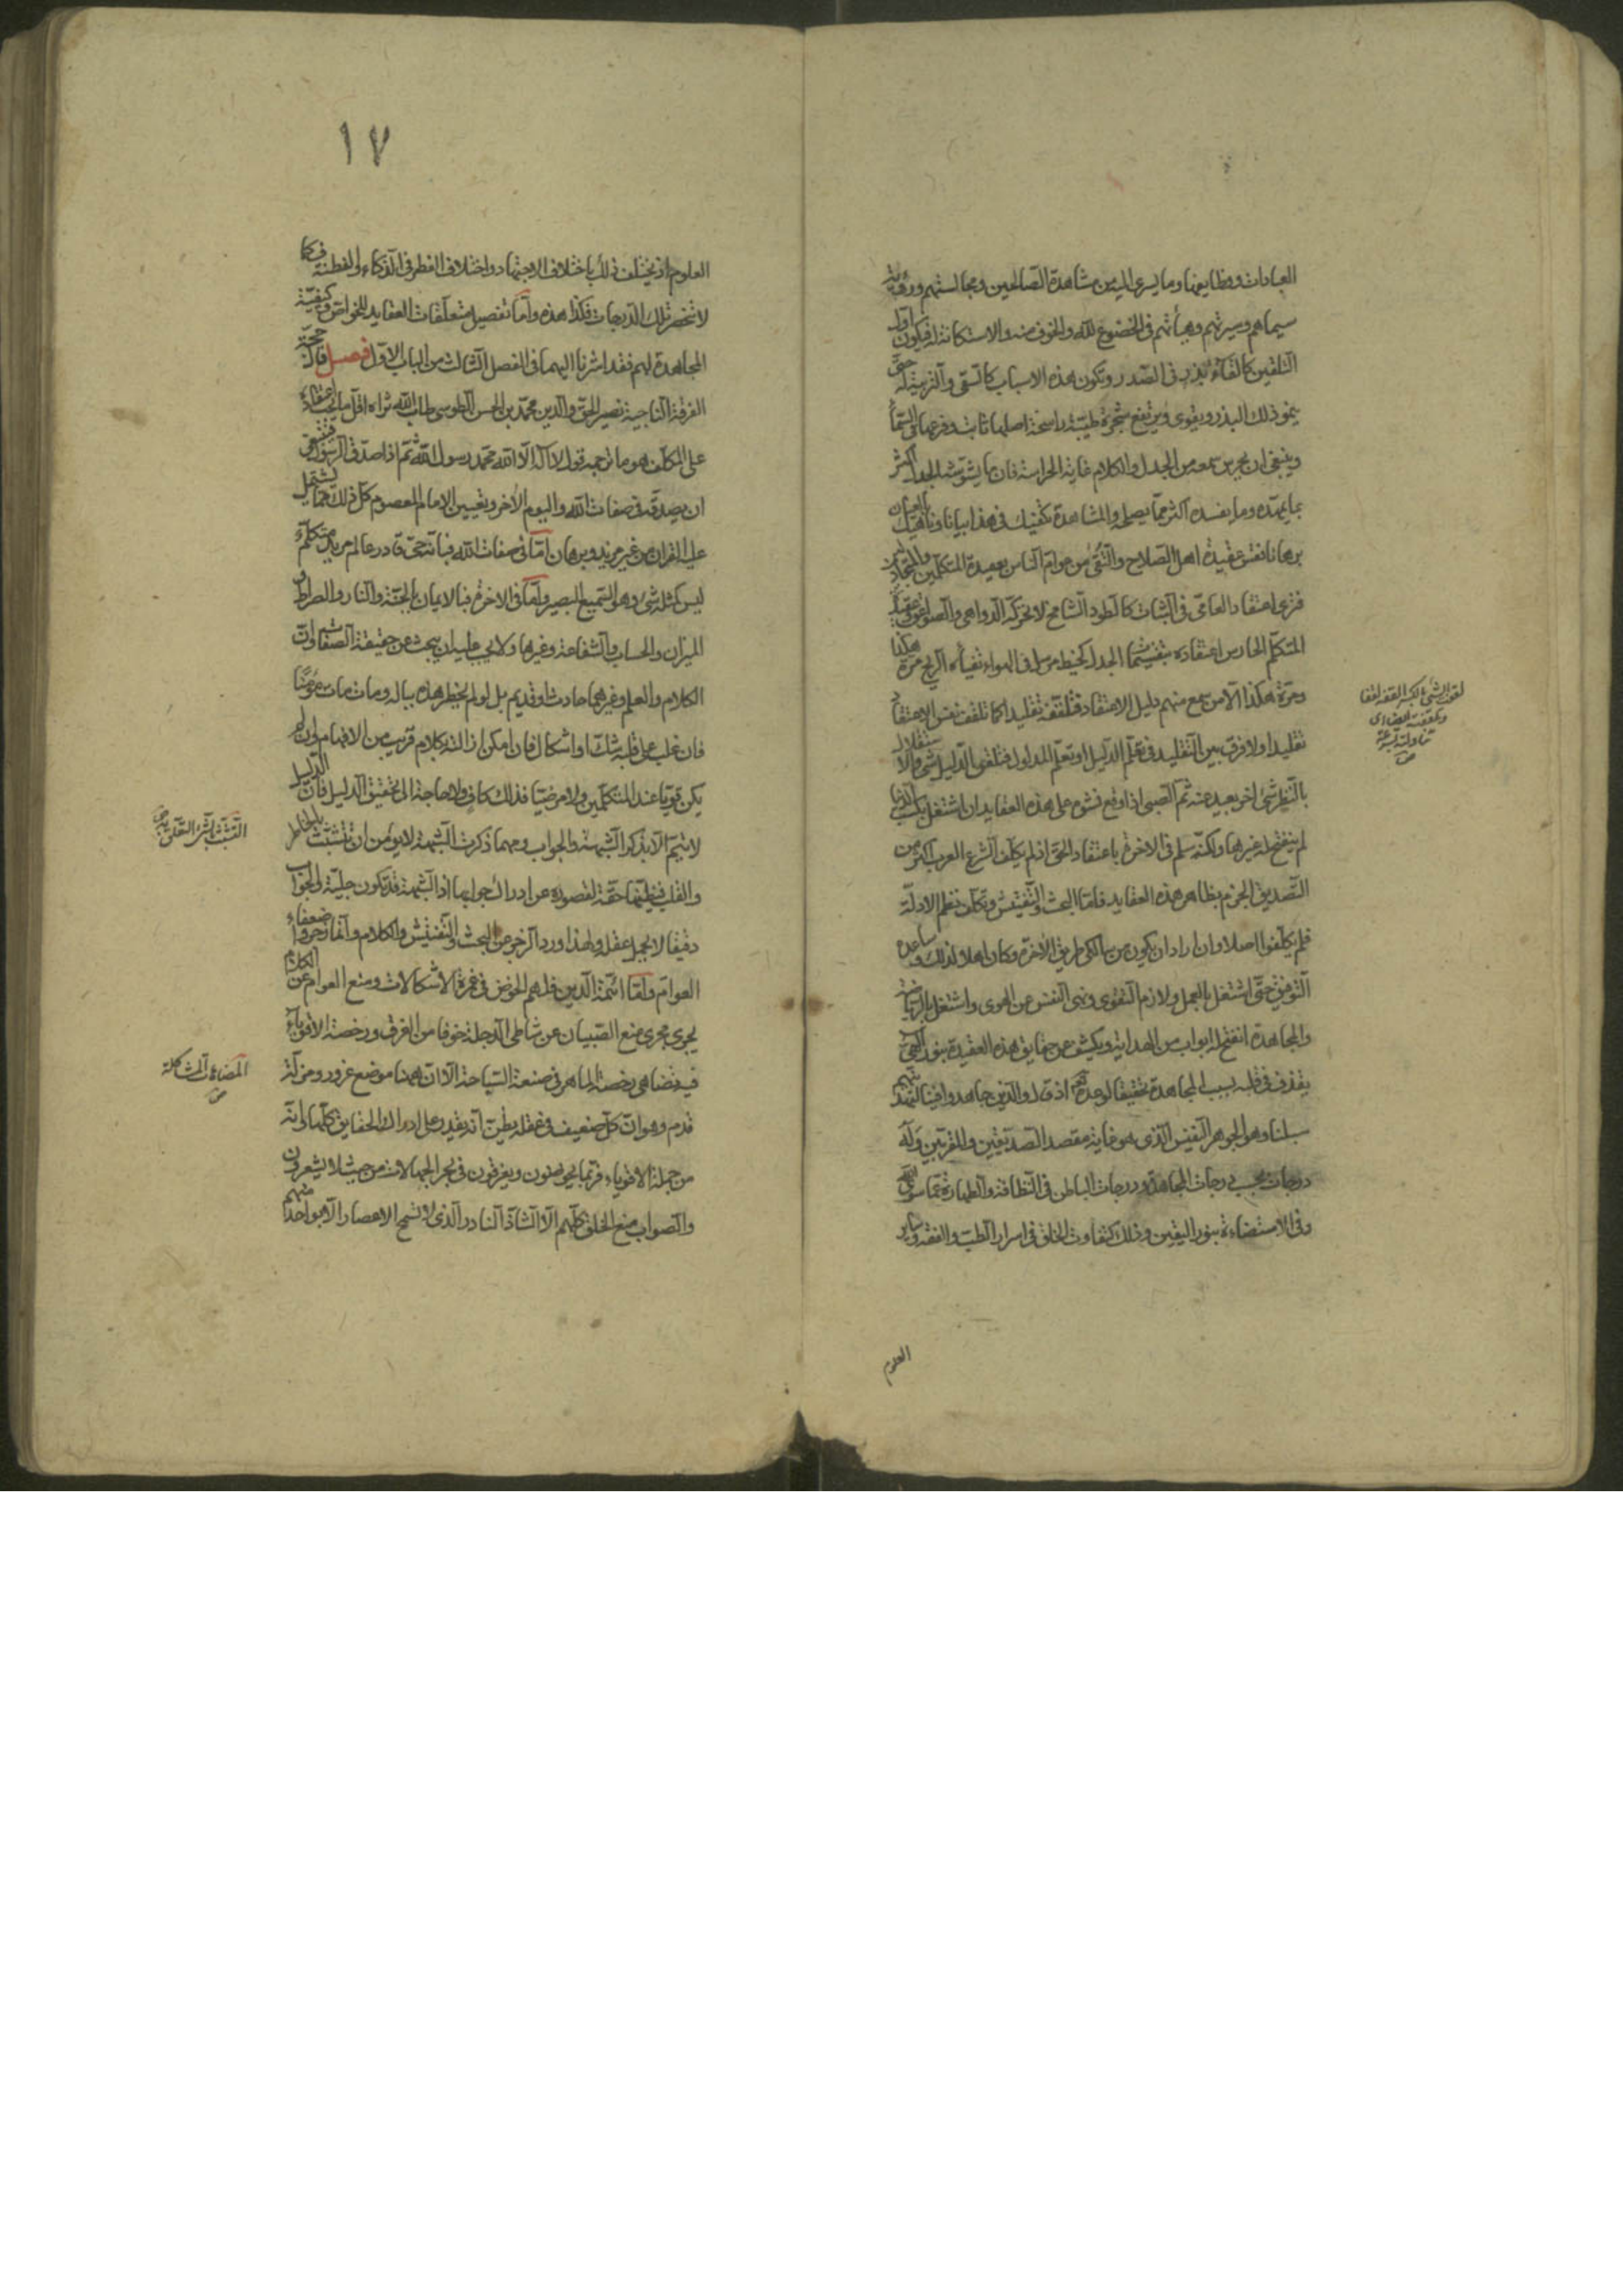 العبادات ووظايفها وما يسرى اليه من مشاهدة الصالحين ومجالستهم ورؤية
سيماهم وسيرتهم وهيأتهم فى الخضوع لله والخوف منه والاستكانة له فيكون اول
التلقين كالقاء بذر فى الصدر وتكون هذه الاسباب كالسقى والتربية له حتى
ينمو ذلك البذر ويقوى ويرتفع شجرة طيبة راسخة اصلها ثابت وفرعها فى السماء
وينبغى ان يحرس سمعه من الجدل والكلام غاية الحراسة فان ما يشوشه الجدل اكثر
مما يمهده وما يفسده اكثر مما يصلحه والمشاهدة تكفيك فى هذا بيانا وناهيك بالعيان
برهانا فقس عقيدة اهل الصلاح والتقى من عوام الناس بعقيدة المتكلمين والمجادلين
فترى اعتقاد العامى فى الثبات كالطود الشامخ لا تحركه الدواهى والصواعق وعقيدة
المتكلم الحارس اعتقاده بتقسيمات الجدل كخيط مرسل فى الهواء تفيأه الريح مرة هكذا
ومرة هكذا الا من سمع منهم دليل الاعتقاد فتلقفه تقليدا كما تلقف نفس الاعتقاد
تقليدا ولا فرق بين التقليد فى تعلم الدليل او تعلم المدلول فتلقى الدليل شئ والاستقلال
بالنظر شئ اخر بعيد عنه ثم الصبى اذا وقع نشوه على هذه العقايد ان اشتغل بكسب الدنيا
لم ينفتح له غيرها ولكنه سلم فى الاخرة باعتقاد الحق اذ لم يكلف الشرع العرب اكثر من
التصديق الجزم بظاهر هذه العقايد فاما البحث والتفتيش وتكلف نظم الادلة
فلم يكلفوا اصلا وان اراد ان يكون من سالكى طريق الاخرة وكان اهلا لذلك وساعده
التوفيق حتى اشتغل بالعمل ولازم التقوى ونهى النفس عن الهوى واشتغل بالرياضة
والمجاهدة انفتح له ابواب من الهداية ويكشف عن حقايق هذه العقيدة بنور الهى
يقذف فى قلبه بسبب المجاهدة تحقيقا لوعده تعالى اذ قال والذين جاهدوا فينا لنهدينهم
سبلنا وهو الجوهر النفيس الذى هو غاية مقصد الصديقين والمقربين وله
درجات بحسب درجات المجاهدة ودرجات الباطن فى النظافة والطهارة عما سوى الله
وفى الاستضاءة بنور اليقين وذلك كتفاوت الخلق فى اسرار الطب والفقه وساير
العلوم
لقف الشئ بالكسر القفه لقفا
وتلقفته ايضا اى
تناولته بسرعة
ص
١٧
العلوم اذ يختلف ذلك باختلاف الاجتهاد واختلاف الفطر فى الذكاء والفطنة فكما
لا تنحصر تلك الدرجات فكذا هذه واما تفصيل متعلقات العقايد للخواص وكيفية
المجاهدة لهم فقد اشرنا اليهما فى الفصل الثالث من الباب الاول فصل قال حجة
الفرقة الناجية نصير الحق والدين محمد بن الحسن الطوسى طاب الله ثراه اقل ما يجب اعتقاده
على المكلف هو ما ترجمه قول لا اله الا الله محمد رسول الله ثم اذا صدق الرسول فينبغى
ان يصدقه فى صفات الله واليوم الاخر وتعيين الامام المعصوم كل ذلك مما يشتمل
عليه القران من غير مزيد وبرهان اما فى صفات الله فبانه حى قادر عالم مريد متكلم
ليس كمثله شئ وهو السميع البصير واما فى الاخرة فبالايمان بالجنة والنار والصراط و
الميزان والحساب والشفاعة وغيرها ولا يجب عليه ان يبحث عن حقيقة الصفات وان
الكلام والعلم وغيرهما حادث او قديم بل لو لم يخطر هذه بباله ومات مات مؤمنا
فان غلب على قلبه شك او اشكال فان امكن ازالته بكلام قريب من الافهام وان لم
يكن قويا عند المتكلمين ولا مرضيا فذلك كاف ولا حاجة الى تحقيق الدليل فان الدليل
لا يتم الا بذكر الشبهة والجواب ومهما ذكرت الشبهة لا يؤمن ان تتشبث بالخاطر
والقلب فيظنها حقة لقصوره عن ادراك جوابها اذ الشبهة قد تكون جلية والجواب
دقيقا لا يحمله عقله ولهذا ورد الزجر عن البحث والتفتيش والكلام وانما زجروا ضعفاء
العوام واما ائمة الدين فلهم الخوض فى غمرة الاشكالات ومنع العوام عن الكلام
يجرى مجرى منع الصبيان عن شاطى الدجلة خوفا من الغرق ورخصة الاقوياء
فيه تضاهى رخصة الماهر فى صنعة السباحة الا ان ههنا موضع غرور ومزلة
قدم وهو ان كل ضعيف فى عقله يظن انه يقدر على ادراك الحقايق كلها وانه
من جملة الاقوياء فربما يخوضون ويغرقون فى بحر الجهالات من حيث لا يشعرون
والصواب منع الخلق كلهم الا الشاذ النادر الذى لا تسمح الاعصار الا بواحد منهم
التشبث بالشئ التعلق به ص
المضاهات المشاكلة
ص